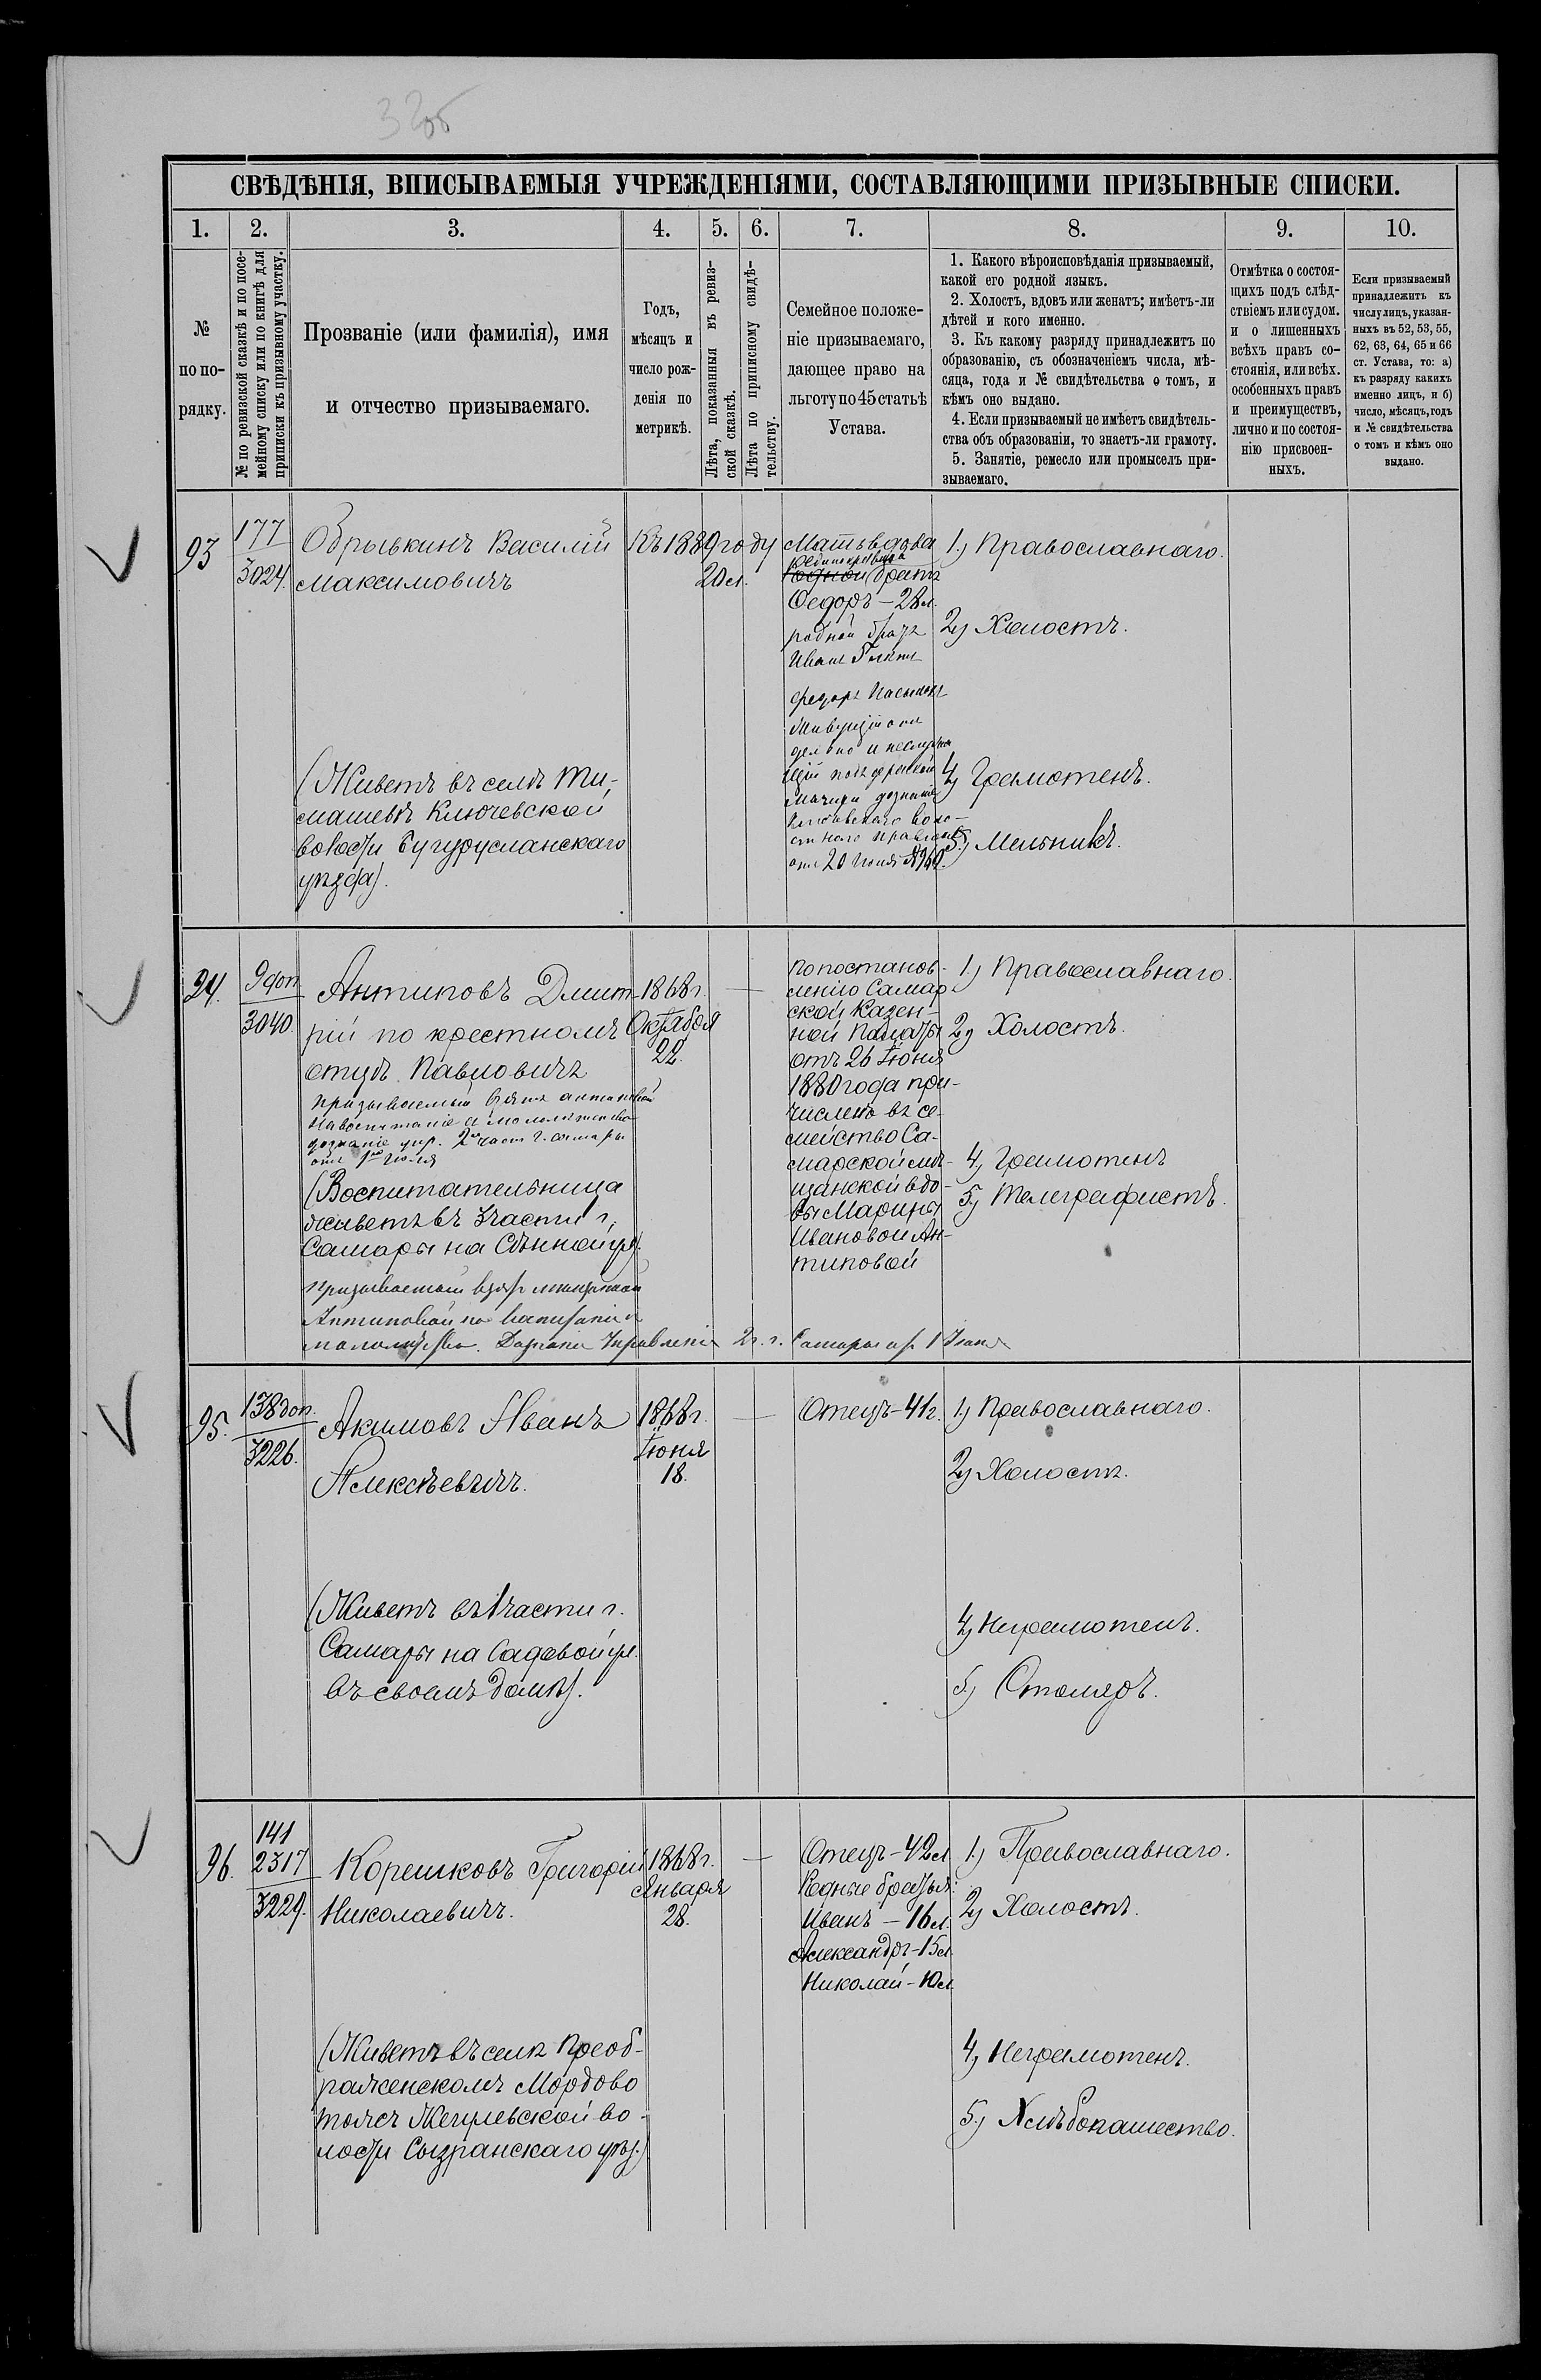 32об
СВѢДѢНІЯ, ВПИСЫВАЕМЫЯ УЧРЕЖДЕНІЯМИ, СОСТАВЛЯЮЩИМИ ПРИЗЫВНЫЕ СПИСКИ.
1. 2. 3. 4. 5. 6. 7. 8. 9. 10.
№
по по-
рядку.
№ по ревизской сказкѣ и по посе-
мейному списку или по книгѣ для
приписки къ призывному участку.
Прозваніе (или фамилія), имя
и отчество призываемаго.
Годъ,
мѣсяцъ и
число рож-
денія по
метрикѣ.
Лѣта, показанныя въ ревиз-
ской сказкѣ.
Лѣта по приписному свидѣ-
тельству.
Семейное положе-
ніе призываемаго,
дающее право на
льготу по 45 статьѣ
Устава.
1. Какого вѣроисповѣданія призываемый,
какой его родной языкъ.
2. Холостъ, вдовъ или женатъ; имѣетъ-ли
дѣтей и кого именно.
3. Къ какому разряду принадлежитъ по
образованію, съ обозначеніемъ числа, мѣ-
сяца, года и № свидѣтельства о томъ, и
кѣмъ оно выдано.
4. Если призываемый не имѣетъ свидѣтель-
ства объ образованіи, то знаетъ-ли грамоту.
5. Занятіе, ремесло или промыселъ при-
зываемаго.
Отмѣтка о состоя-
щихъ подъ слѣд-
ствіемъ или судом.
и о лишенныхъ
всѣхъ правъ со-
стоянія, или всѣх.
особенныхъ правъ
и преимуществъ,
лично и по состоя-
нію присвоен-
ныхъ.
Если призываемый
принадлежитъ къ
числу лицъ, указан-
ныхъ въ 52, 53, 55,
62, 63, 64, 65 и 66
ст. Устава, то: а)
къ разряду какихъ
именно лицъ, и б)
число, мѣсяцъ, годъ
и № свидѣтельства
о томъ и кѣмъ оно
выдано.
93
177
3024.
Обрывкинъ Василій
Максимовичъ
(Живетъ въ селѣ Ти-
машевѣ Ключевской
волости Бугурусланскаго
уѣзда).
Къ 1889 году
20 л.
Мать вдова
Родной братъ
Федоръ – 28 л.
родной братъ
Иванъ
Федоръ
от 20 Июня
1.) Православнаго.
2.) Холостъ.
4.) Грамотенъ.
5.) Мельникъ.
94.
9 доп
3040.
Антиповъ Дмит-
рій по крестномъ
отцѣ Павловичъ
призываемый взятъ Антиповой
на воспитаніе
дознаніе упр. 2й части г. Самары
(Воспитательница
живетъ въ 3 части г.
Самары на Сѣнной ул).
Призываемый взятъ
Антиповой на воспитаніе
Дознаніе Управленія 2 ч. г. Самары
1868 г.
Октября
22.
—
По постанов-
ленію Самар-
ской Казен-
ной Палаты
отъ 26 Іюня
1880 года при-
численъ въ се-
мейство Са-
марской мѣ-
щанской вдо-
вы Марины
Ивановой Ан-
типовой
1.) Православнаго.
2.) Холостъ.
4.) Грамотенъ
5.) Телеграфистъ.
95.
138 доп.
3226.
Акимовъ Иванъ
Алексѣевичъ.
(Живетъ въ 1 части г.
Самары на Садовой ул.
въ своемъ домѣ).
1868 г.
Іюня
18.
—
Отецъ – 41 г.
1.) Православнаго.
2.) Холостъ.
4.) Неграмотенъ.
5.) Столяръ.
96.
141
2317
3229.
Корешковъ Григорій
Николаевичъ.
(Живетъ въ селѣ Преоб-
раженскомъ Мордово
тожъ Жегулевской во-
лости Сызранскаго уѣз.)
1868 г.
Января
28.
—
Отецъ – 42 л
Родные братья:
Иванъ – 16 л.
Александръ – 15 л
Николай – 10 л
1.) Православнаго.
2.) Холостъ.
4.) Неграмотенъ.
5.) Хлѣбопашество.